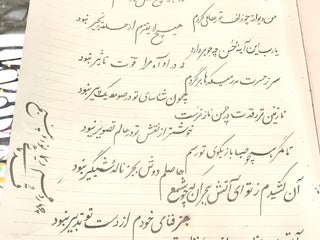 من دیوانه چو زلف تو رها می کردم
هیچ لایق ترم از حلقه زنجیر نبود
یارب این آینهٔ حسن چه جوهر دارد
که در او آه مرا قوت تاثیر نبود
سر ز حسرت بدر میکده ها برکردم
چون شناسای تو در صومعه یک پیر نبود
نازنین تر ز قدت در چمن ناز نرست
خوشتر از نقش تو در عالم تصویر نبود
تا مگر همچو صبا باز بکوی تو رسم
حاصلم دوش بجز ناله شبگیر نبود
آن کشیدم ز تو ای آتش هجران که چو شمع
جز فنای خودم از دست تو تدبیر نبود